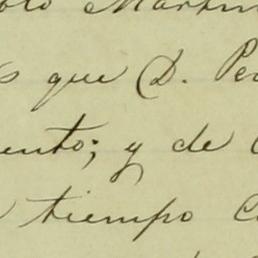 Martin
que D. Pe
ento; y de
tiempo